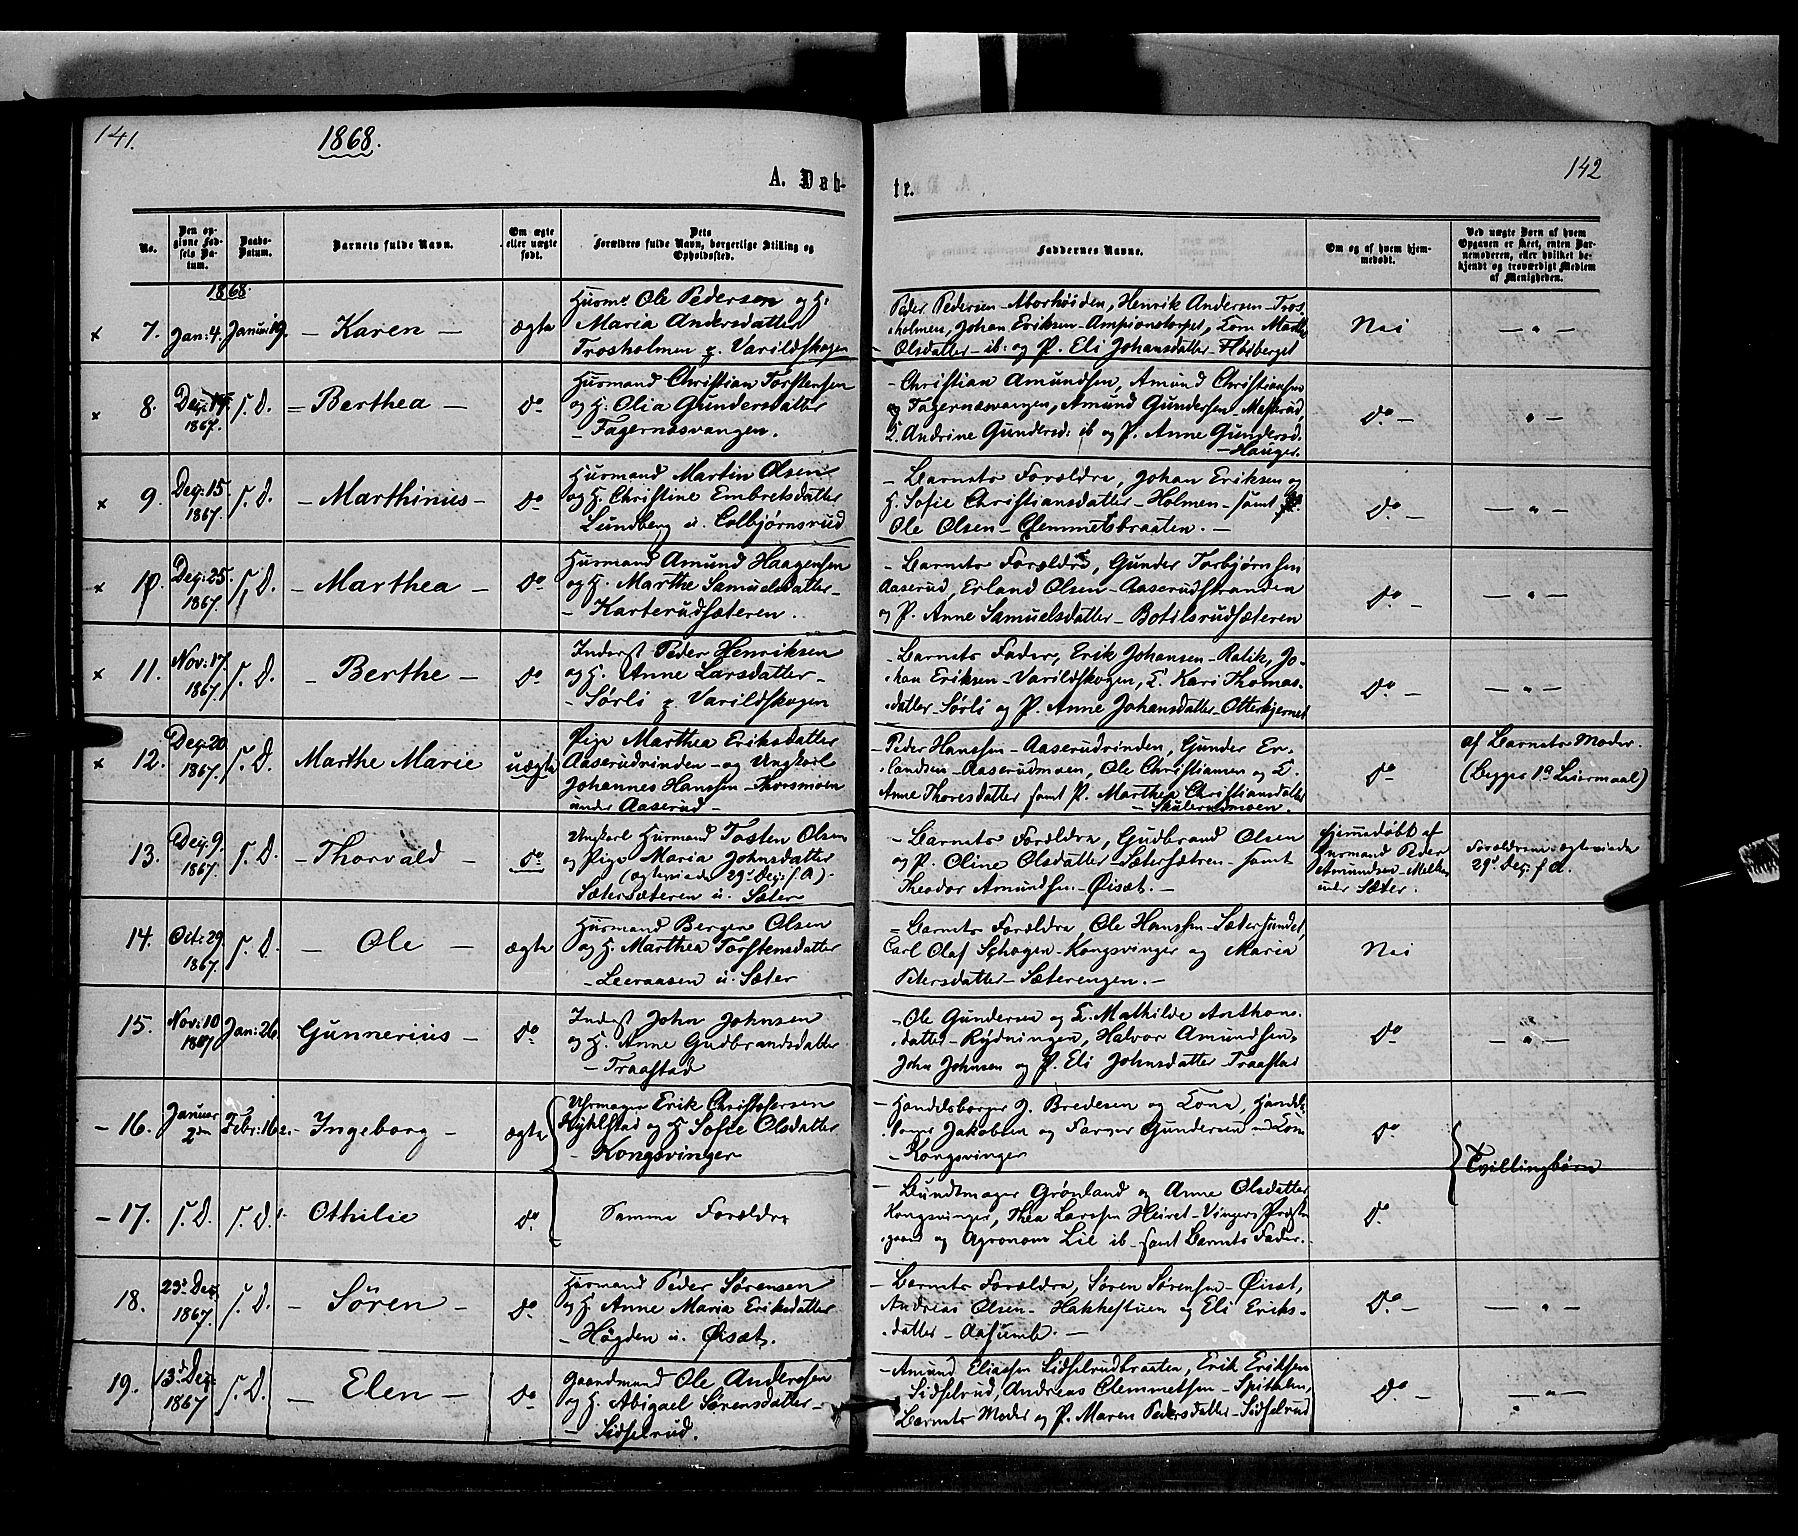 141.
1868.
142
A. Dab-
te.
No.
Den op-
givne Fød-
sels Da-
tum.
Daabs-
Datum.
Barnets fulde Navn.
Om ægte
eller uægte
født.
Dets
Forældres fulde Navn, borgerlige Stilling og
Opholdssted.
Faddernes Navne.
Om og af hvem hjem-
medøbt.
Ved uægte Børn af hvem
Opgaven er skeet, enten Bar-
nemoderen, eller hvilket be-
kjendt og troværdigt Medlem
af Menigheden.
1868.
x 7. Jan: 4. Januar 19. – Karen – ægte
Husmd Ole Pedersen og H.
Maria Andersdatter
Trosholmen p. Varildskogen
Peder Pedersen – Aborhöiden, Henrik Andersen – Tros-
holmen, Johan Eriksen – Ampionstorpet, Kone Marthe
Olsdatter – ib: og P. Eli Johansdatter – Flisberget
Nei
– " –
x 8. Dec: 14. 1867. s. D. – Berthea – do
Husmand Christian Torstensen
og H. Olia Gundersdatter
– Fagernæsvangen.
– Christian Amundsen, Amund Christiansen
Fagernæsvangen, Amund Gundersen – Masterud
K. Andrine Gundersd: ib og P. Anne Gundersd.
– Hauger.
do –
" –
x 9. Dec: 15. 1867. s. D. – Marthinius – do
Husmand Martin Olsen
og H. Christine Embretsdatter
Lundberg u. Colbjørnsrud
– Barnets Forældre, Johan Eriksen og
H. Sofie Christiansdatter – Holmen – samt
Ole Olsen – Clemmetsbraaten. –
do –
– " –
x 10. Dec: 25. 1867. s. D. – Marthea – do
Husmand Amund Haagensen
og H. Marthe Samuelsdatter –
– Karterudsæteren.
– Barnets Forældre, Gunder Torbjørnsen
Aaserud, Erland Olsen – Aaserudstranden
og P. Anne Samuelsdatter – Botilsrudsæteren
do –
– " –
x 11. Nov: 17. 1867. s. D. – Berthe – do
Inderst Peder Henriksen
og H. Anne Larsdatter –
– Sørli p. Varildskogen
– Barnets Fader, Erik Johansen – Ralik, Jo-
han Eriksen – Varildskogen, K. Kari Thomas-
datter – Sørli og P. Anne Johansdatter – Otterkjernet
do –
– " –
x 12. Dec: 20 1867. s. D. Marthe Marie uægte
Pige Marthea Eriksdatter
Aaserudrinden – og Ungkarl
Johannes Hanssen – Thorsmoen
under Aaserud –
– Peder Hanssen – Aaserudrinden, Gunder Er-
landsen – Aaserudmoen, Ole Christiansen og K.
Anne Thoresdatter samt P. Marthea Christiansdatter
– Skulerudmoen.
do
af Barnets Moder.
(Begges 1ste Leiermaal)
13. Dec: 9. 1867. s. D. – Thorvald – do
Ungkarl Husmand Tosten Olsen
og Pige Maria Johnsdatter
(ægteviede 29d Dec: s. A) –
Sætersæteren u. Sæter
– Barnets Forældre, Gudbrand Olsen
og P. Oline Olsdatter – Sætersætren – samt
Theodor Amundsen – Øisæt. –
Hjemmedøbt af
Husmand Peder
Amundsen –
under Sæter.
Forældrene ægteviede
29d Dec: s. A.
14. Oct: 29 1867. s. D. – Ole – ægte
Husmand Berger Olsen
og H. Marthea Torstensdatter
– Leeraasen u. Sæter
– Barnets Forældre, Ole Hanssen – Sætersundet,
Carl Olaf Schøgen – Kongsvinger og Maria
Petersdatter – Sæterengen. –
Nei
15. Nov: 10 1867 Jan: 26. Gunnerius – do
Inderst John Johnsen
og H. Anne Gudbrandsdatter
– Traastad
– Ole Gundersen og K. Mathilde Anthons-
datter – Rydningen, Halvor Amundsen,
John Johnsen og P. Eli Johnsdatter – Traastad
do
– " –
– 16. Januar 2den Febr: 16 – Ingeborg – ægte
Uhrmager Erik Christophersen
Kyhlstad og H Sofie Olsdatter
– Kongsvinger
– Handelsborger J. Bredesen og Kone, Handels-
borger Jakobsen og Farver Gundersen med Kone
– Kongsvinger
do
Tvillingbørn
– 17. s. D. s. D. Othilie do
Samme Forældre
– Bundtmager Grønland og Anne Olsdatter
Kongsvinger, Thea Larssen Heiret – Vingers Præste-
gaard og Agronom Lie ib – samt Barnets Fader. –
do
18. 23d Dec. 1867. s. D. – Sören – do
Husmand Peder Sørensen
og H. Anne Maria Eriksdatter
– Høgden u. Øisæt.
– Barnets Forældre, Søren Sørensen – Øisæt,
Andreas Olsen – Hakkestuen og Eli Eriks-
datter – Aasumb. –
do –
– " –
19. 13d Dec: 1867 s. D. – Elen – do
Gaardmand Ole Andersen
og H. Abigael Sørensdatter –
– Sidselrud.
– Amund Eliassen Sidselrudbraaten, Erik Eriksen
Sidselrud, Andreas Clemmetsen – Spitalen,
Barnets Moder og P. Maren Pedersdatter – Sidselrud
do –
– " –